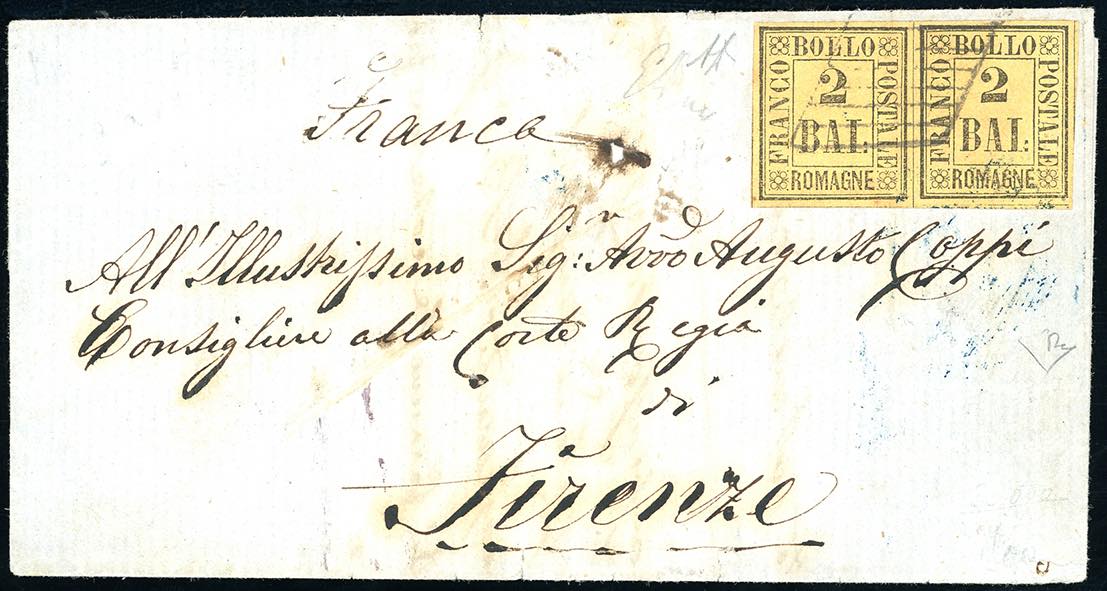 Franca
BOLLO
FRANCO
2
BAI:
POSTALE
ROMAGNE
BOLLO
FRANCO
2
BAI:
POSTALE
ROMAGNE
All'Illustrissimo Sig:r Avvo Augusto Coppi
Consigliere alla Corte Regia
di
Firenze